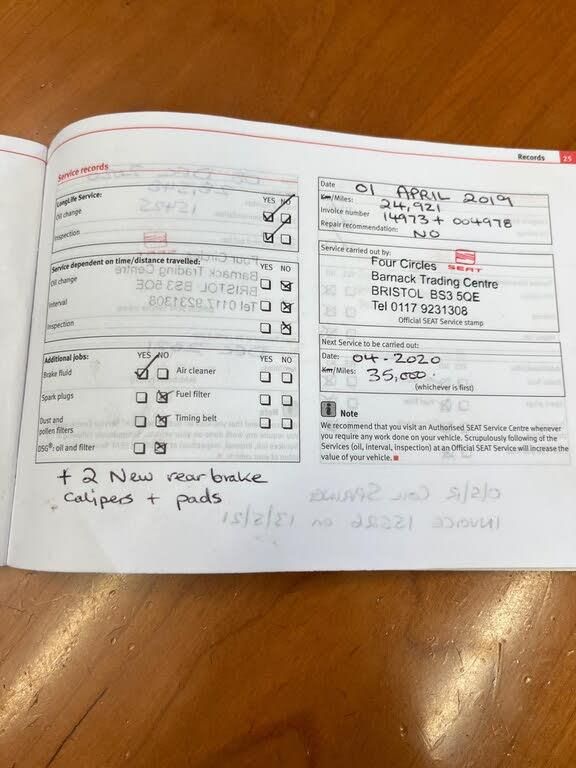 Records 25
Service records
LongLife Service: YES NO
Oil change
Inspection
Service dependent on time/distance travelled: YES NO
Oil change
Interval
Inspection
Additional jobs: YES NO YES NO
Brake fluid Air cleaner
Spark plugs Fuel filter
Dust and pollen filters Timing belt
DSG®: oil and filter
+ 2 New rear brake
calipers + pads
Date 01 APRIL 2019
Km/Miles: 24,921
Invoice number 14973 + 004978
Repair recommendation: NO
Service carried out by:
SEAT
Four Circles
Barnack Trading Centre
BRISTOL BS3 5QE
Tel 0117 9231308
Official SEAT Service stamp
Next Service to be carried out:
Date: 04-2020
Km/Miles: 35,000.
(whichever is first)
Note
We recommend that you visit an Authorised SEAT Service Centre whenever
you require any work done on your vehicle. Scrupulously following of the
Services (oil, interval, inspection) at an Official SEAT Service will increase the
value of your vehicle.